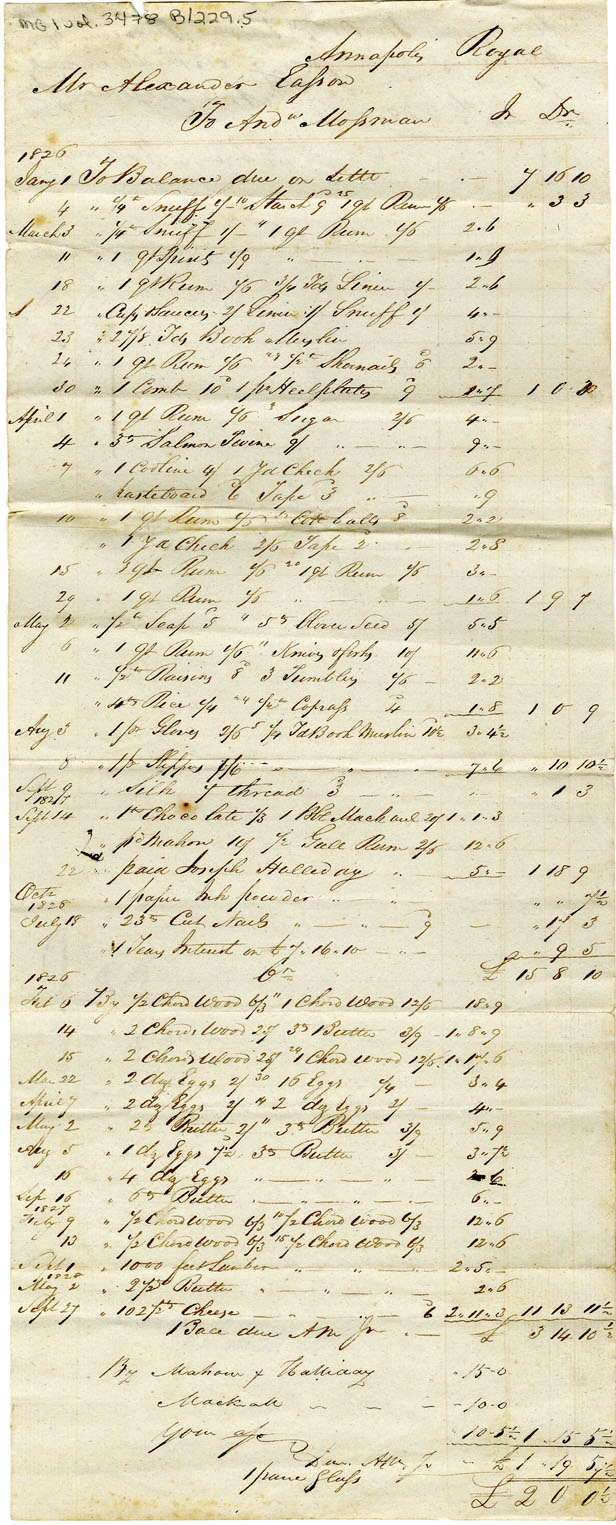 MG 1 Vol. 3478 B1229.5
Annapolis Royal
Mr Alexander Easson
To Andw Mossman Jr Dr
1826
Jany 1 To Balance due on Settt - - 7 16 10
4 " 1/4 lb Snuff 1/- 10 Starch 9 25 1 qt Rum 1/6 - " 3 3
March 3 " 1/4 lb Snuff 1/- " 1 qt Rum 1/6 2 " 6
11 " 1 qt Spirits 1/9 " 1 " 9
18 " 1 qt Rum 1/6 3/4 Yd Linen 1/- 2 " 6
22 " Cups Saucers 2/ Linen 1/ Snuff 1/ 4 " -
23 " 2 7/8 Yds Book Muslin 5 " 9
24 " 1 qt Rum 1/6 1/2 lb 6 2 " -
30 " 1 Comb 10d 1 pr Heelplates 9 2 " 7 1 0
April 1 " 1 qt Rum 1/6 3 Sugar 2/6 4 " -
4 " 3 lb Salmon Twine 9/ " - " - 9 " -
7 " 1 Codline 4/ 1 Yd Check 2/6 6 " 6
" Pasteboard 6 Tape 3 " - " 9
10 " 1 qt Rum 1/6 balls 8 2 " 2
" 1 Yd Check 2/6 Tape 2 - 2 " 8
15 " 1 qt Rum 1/6 20 1 qt Rum 1/6 3 " -
29 " 1 qt Rum 1/6 " - " - 1 " 6 1 9 7
May 2 " 1/2 lb Soap 5 " 5 lb Clover Seed 5/ 5 " 5
6 " 1 qt Rum 1/6 " Knives & forks 10/ 11 " 6
11 " 1/2 lb Raisins 8 3 Tumblers 1/6 - 2 " 2
" 4 lb Rice 1/4 " 1/2 lb Copras 4 1 " 8 1 0 9
Aug 3 " 1 pr Gloves 2/6 5 1/4 Yd Book Muslin 10 1/2 3 " 4 1/2
8 " 1 pr Slippers 7/6 - - 7 " 6 " 10 10 1/2
Sept 9 " Silk & thread 3 - " - " " 1 3
1827
Sept 14 " 1 lb Chocolate 1/3 1 Bbl Mackarel 20/ 1 " 1 " 3
" pd Mahon 10/ 1/2 Gall Rum 2/6 12 " 6
22 " paid Joseph Halleday " - 5 " - 1 18 9
Octr " 1 paper Ink powder " - " " " 7 1/2
1828
July 18 " 23 lb Cut Nails " - " 9 - " 17 3
" 1 Years Interest on £7 " 16 " 10 - - " 9 5
Cr £ 15 8 10
1826
Feb 6 By 1/2 Chord Wood 6/3 " 1 Chord Wood 12/6 18 " 9
14 " 2 Chords Wood 25/ 3 lb Butter 3/9 - 1 " 8 " 9
15 " 2 Chords Wood 25/ 24 1 Chord Wood 12/6 1 " 17 " 6
Mar 22 " 2 dz Eggs 2/ 30 16 Eggs 1/4 - 3 " 4
April 7 " 2 dz Eggs 2/ " 2 dz Eggs 2/ - 4 " -
May 2 " 2 lb Butter 2/ " 3 lb Butter 3/9 5 " 9
Aug 5 " 1 dz Eggs 7 1/2 3 lb Butter 3/ - 3 " 7 1/2
15 " 4 dz Eggs " - " - " - 2 6
Sep 16 " 6 lb Butter " - " - " - 6 " -
1827
Feby 9 " 1/2 Chord wood 6/3 10 1/2 Chord wood 6/3 12 " 6
13 " 1/2 Chord Wood 6/3 15 1/2 Chord Wood 6/3 12 " 6
Sept 1 " 1000 feet Lumber " - " 2 " 5 " -
1828
May 2 " 2 1/2 lb Butter " - " - 2 " 6
Sept 27 " 102 1/2 lb Cheese - - 6 2 " 11 " 3 11 13 11 1/2
Bace due AM Jr " - £ 3 14 10 1/2
By Mahon & Halliday " 15 - 0
Mackall - - - - 10 - 0
Your a/c " 10 - 5 1/2 1 15 5 1/2
Due AM Jr 1 19 5
1 pane Glass
£ 2 0 0 1/2